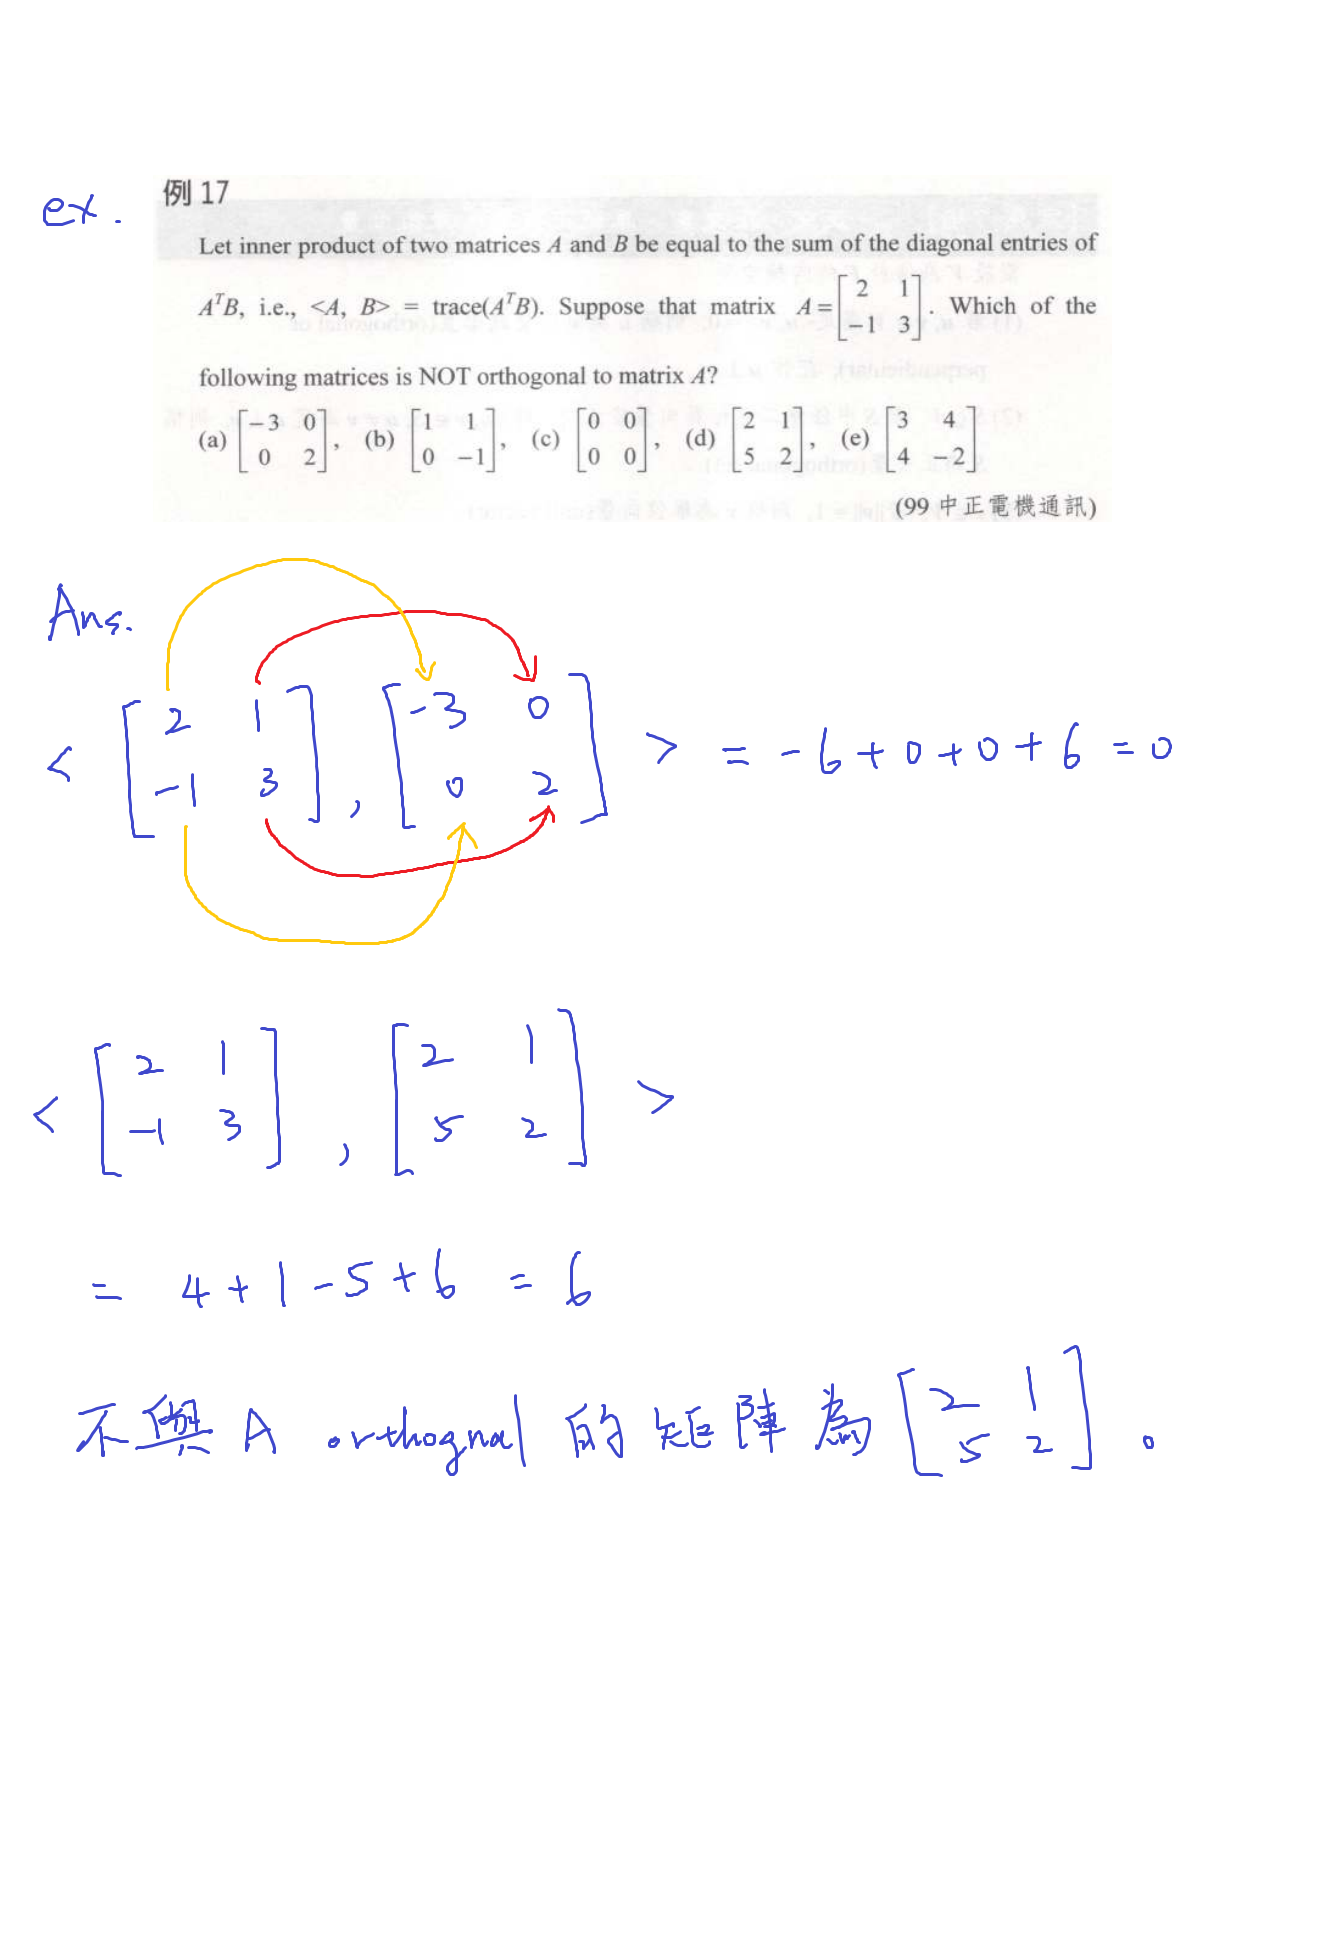 ex.
例 17
Let inner product of two matrices A and B be equal to the sum of the diagonal entries of
AᵀB, i.e., <A, B> = trace(AᵀB). Suppose that matrix A = [2 1; −1 3]. Which of the
following matrices is NOT orthogonal to matrix A?
(a) [−3 0; 0 2], (b) [1 1; 0 −1], (c) [0 0; 0 0], (d) [2 1; 5 2], (e) [3 4; 4 −2]
(99 中正電機通訊)
Ans.
< [2 1; −1 3], [−3 0; 0 2] > = −6+0+0+6 = 0
< [2 1; −1 3], [2 1; 5 2] >
= 4+1−5+6 = 6
不與 A orthognal 的矩陣為 [2 1; 5 2]。